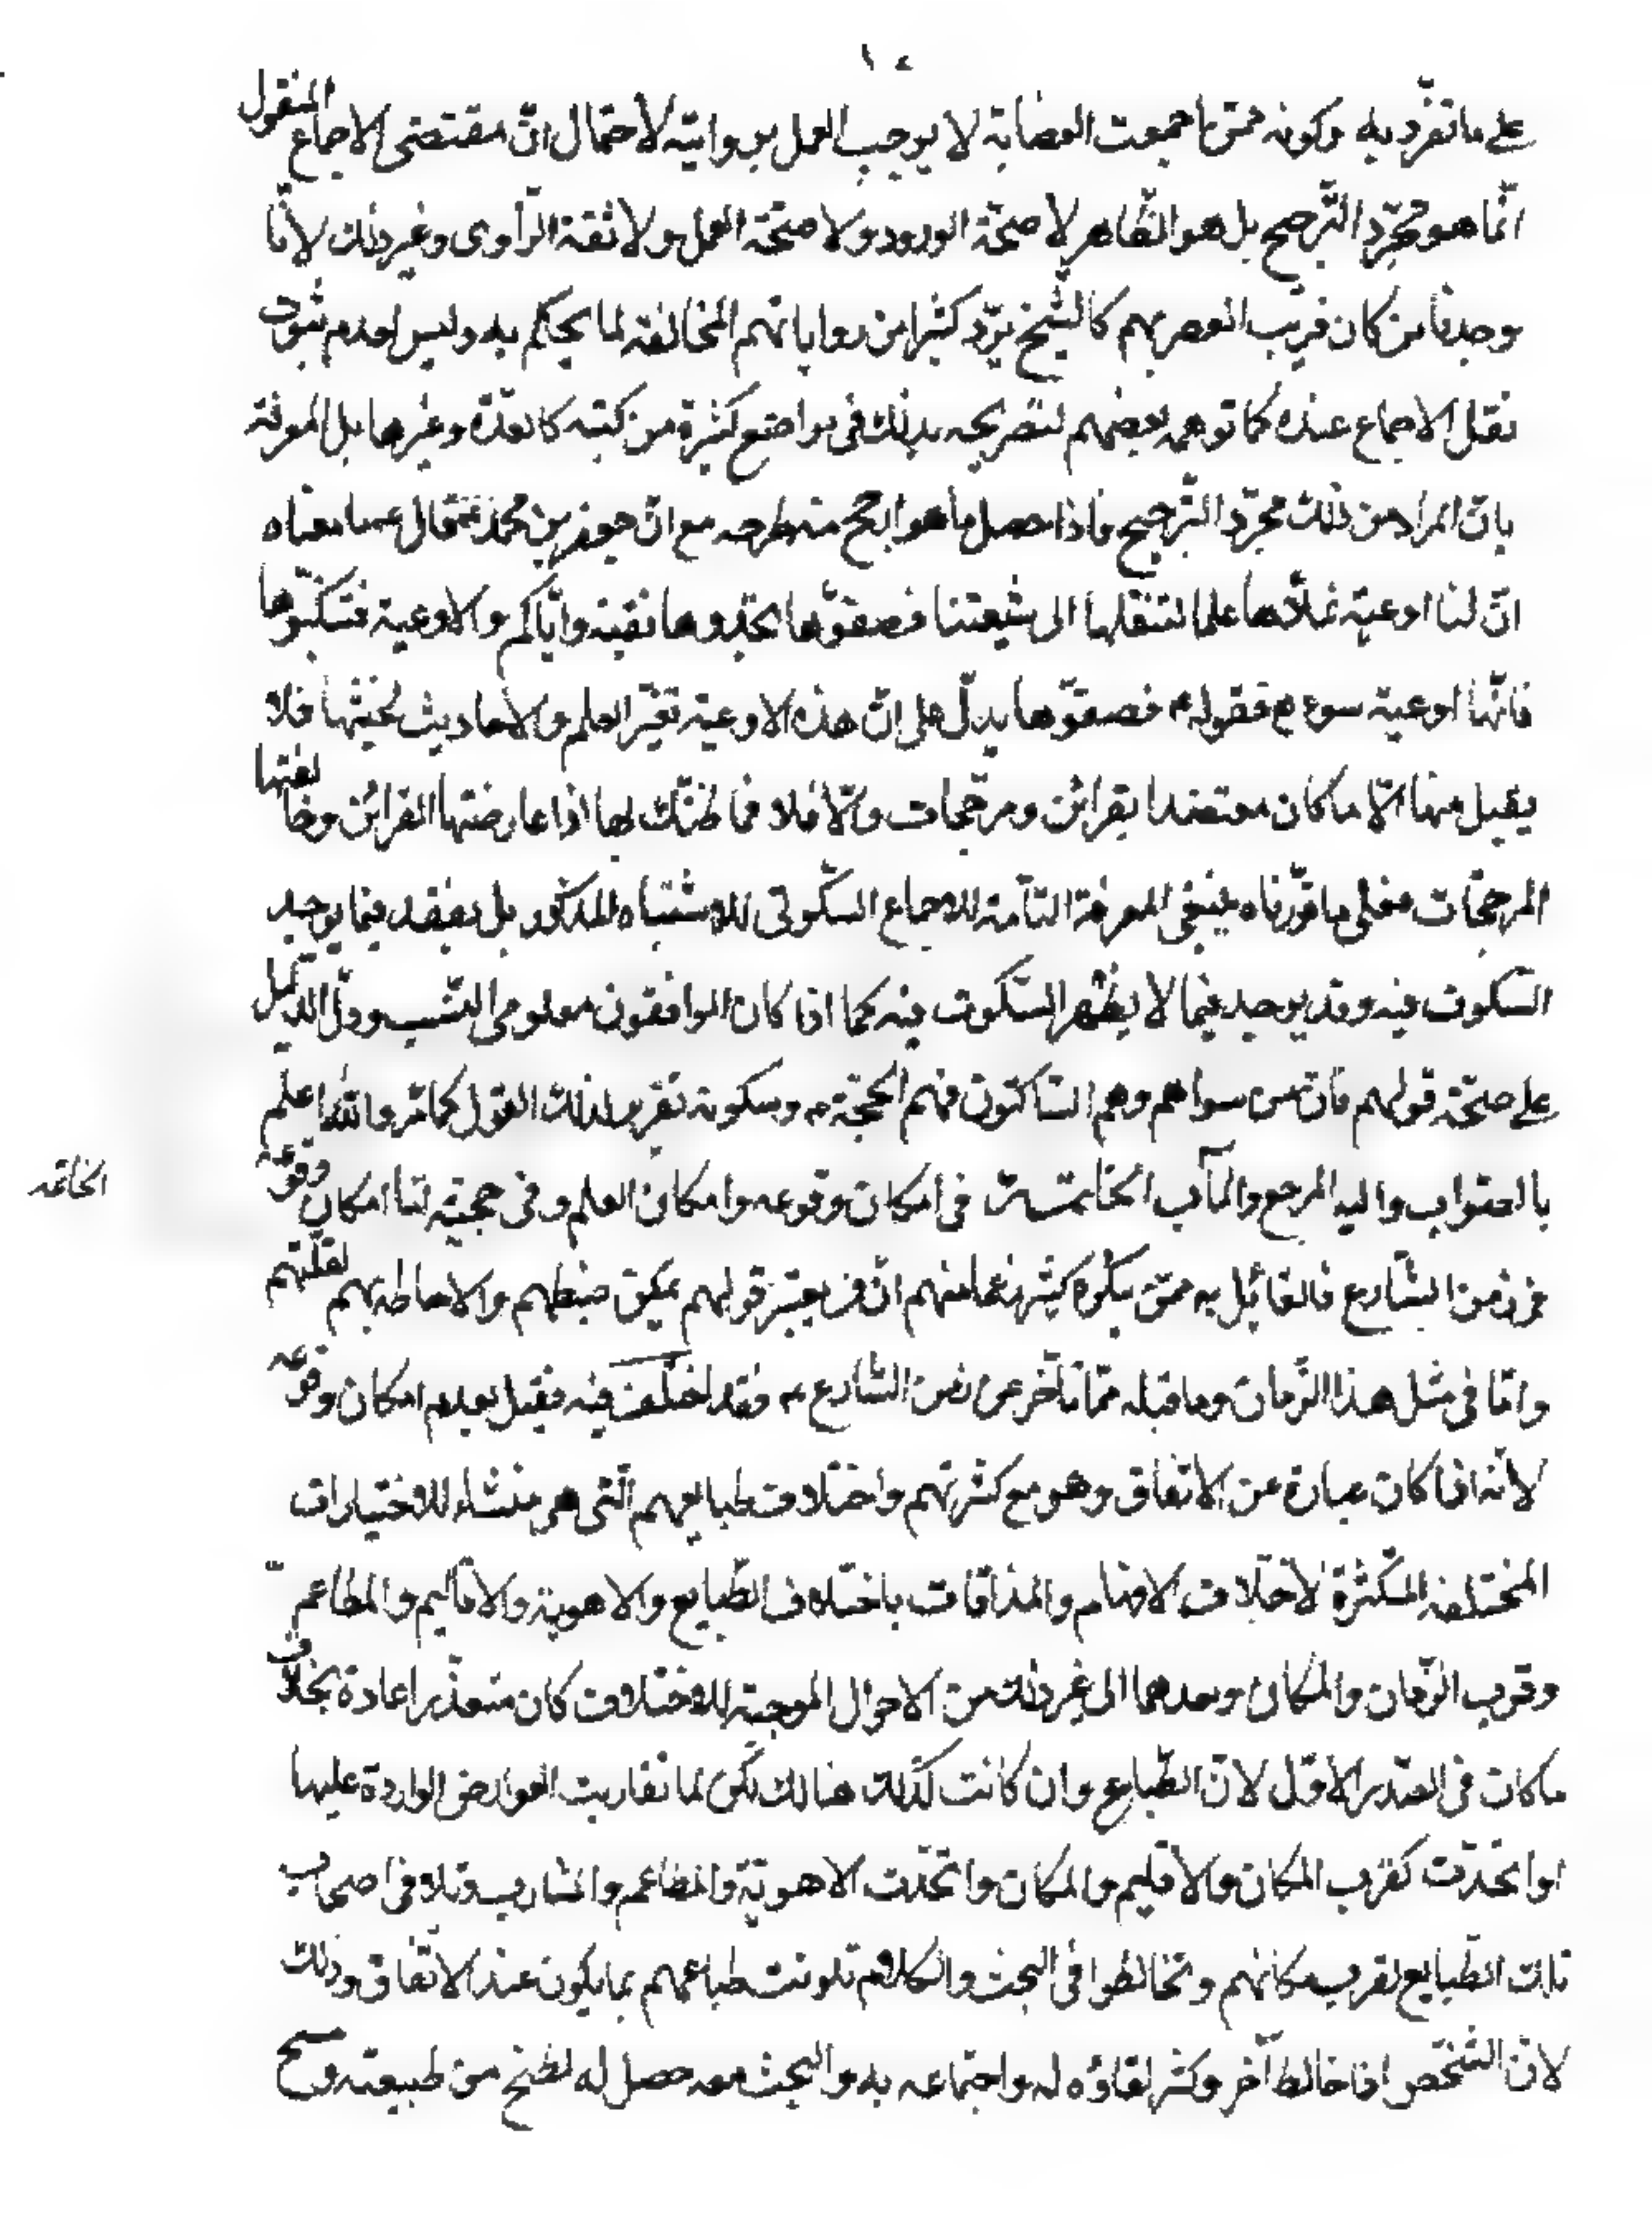 ١٤
على ما تفرّد به وكونه ممّن اجمعت العصابة لا يوجب العمل بروايته لاحتمال انّ مقتضى الاجماع المنقول
انّما هو مجرّد التّرجيح بل هو الظّاهر لا صحّة الورود ولا صحّة العمل ولا ثقة الرّاوى وغير ذلك لانّا
وجدنا من كان قريب العصر بهم كالشّيخ يردّ كثيرا من رواياتهم المخالفة لما يحكم به وليس لعدم ثبوت
نقل الاجماع عنده كما توهمه بعضهم لتصريحه بذلك فى مواضع كثيرة من كتبه كالعدّة وغيرها بل لمعرفته
بانّ المراد من ذلك مجرّد التّرجيح فاذا حصل ما هو ارجح منه طرحه مع انّ جعفر بن محمد ع قال ما معناه
انّ لنا اوعية نملأها علما لتنقلها الى شيعتنا فصفّوها تجدوها نقيّة وايّاكم والاوعية فتنكّبوها
فانّها اوعية سوء فقوله ع فصفّوها يدلّ على انّ هذه الاوعية تغيّر العلم والاحاديث لخبثها فلا
يقبل منها الّا ما كان معتضدا بقرائن ومرجّحات والّا فلا فما ظنّك بها اذا عارضتها القرائن وخالفتها
المرجّحات فعلى ما قرّرناه ينبغى المعرفة التّامّة للاجماع السّكوتى للاشتباه المذكور بل يفقد فيما يوجد
السّكوت فيه وقد يوجد فيما لا يظهر السّكوت فيه كما اذا كان الموافقون معلومى النّسب ودلّ الدّليل
على صحّة قولهم فانّ من سواهم وهم السّاكتون فيهم الحجّة ع وسكوته تقرير لذلك القول كما مرّ والله اعلم
بالصّواب واليه المرجع والمآب الخاتمة فى امكان وقوعه وامكان العلم وفى حجيته لنا امكان وقوعه
الخاتمه
فى زمن الشّارع فالقائل به ممّن ينكره كثير زعما منهم انّ من يعتبر قولهم يمكن ضبطهم والاحاطة بهم لقلّتهم
وامّا فى مثل هذا الزّمان وما قبله ممّا تأخّر عن زمن الشّارع ع فقد اختلف فيه فقيل بعدم امكان وقوعه
لانّه اذا كان عبارة عن الاتّفاق وهو مع كثرتهم واختلاف طبايعهم الّتى هى منشاء للاختيارات
المختلفة المتكثّرة لاختلاف الافهام والمذاقات باختلاف الطّبايع والاهوية والاقاليم والمطاعم
وقرب الزّمان والمكان وبعدهما الى غير ذلك من الاحوال الموجبة للاختلاف كان متعذّرا عادة بخلاف
ما كان فى الصّدر الاوّل لانّ الطّبايع وان كانت كذلك هنالك لكن لما تقاربت العوارض الواردة عليها
او اتّحدت كقرب المكان والاقليم والمكان واتّحدت الاهويّة والمطاعم والمشارب وتلاقى اصحاب
تلك الطّبايع لقرب مكانهم وتخالطوا فى البحث والكلام تلوّنت طباعهم بما يكون عنه الاتّفاق وذلك
لانّ الشّخص اذا خالط آخر وكثر لقاؤه له واجتماعه به والبحث معه حصل له لطخ من طبيعته ومسح